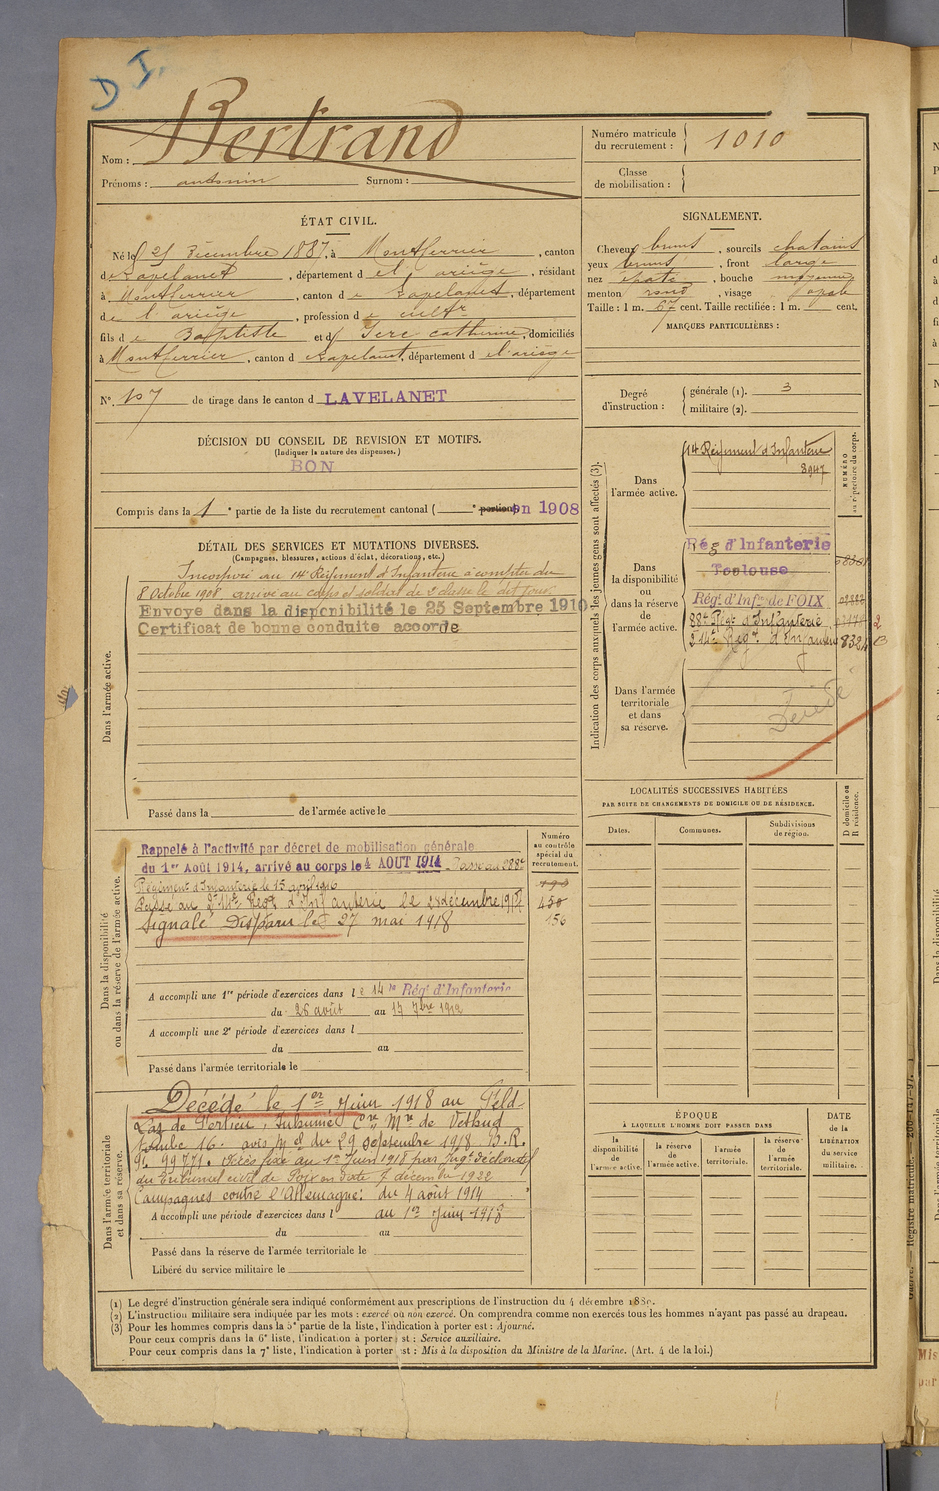 D I.
Nom : Bertrand
Prénoms : antonin Surnom :
Numéro matricule du recrutement : 1010
Classe de mobilisation :
ÉTAT CIVIL.
Né le 25 Décembre 1887, à Montferrier, canton
de Lavelanet, département de l'ariège, résidant
à Montferrier, canton de Lavelanet, département
de l'ariège, profession de cultr
fils de Baptiste et de Serc catherine, domiciliés
à Montferrier, canton de Lavelanet, département de l'ariège
N°. 107 de tirage dans le canton d LAVELANET
DÉCISION DU CONSEIL DE REVISION ET MOTIFS.
(Indiquer la nature des dispenses.)
BON
Compris dans la 1e partie de la liste du recrutement cantonal ( e portion en 1908
SIGNALEMENT.
Cheveux bruns, sourcils chatains
yeux bruns, front large
nez épaté, bouche moyenne
menton rond, visage ovale
Taille : 1 m. 67 cent. Taille rectifiée : 1 m. cent.
MARQUES PARTICULIÈRES :
Degré d'instruction : générale (1). 3
militaire (2).
DÉTAIL DES SERVICES ET MUTATIONS DIVERSES.
(Campagnes, blessures, actions d'éclat, décorations, etc.)
Dans l'armée active.
Incorporé au 14e Régiment d'Infanterie à compter du
8 Octobre 1908 arrivé au corps et soldat de 2e classe le dit jour
Envoyé dans la disponibilité le 25 Septembre 1910
Certificat de bonne conduite accordé
Passé dans la de l'armée active le
Indication des corps auxquels les jeunes gens sont affectés (3).
NUMÉRO au répertoire du corps.
Dans l'armée active.
14e Régiment d'Infanterie
8947
Dans la disponibilité ou dans la réserve de l'armée active.
Rég d'Infanterie
Toulouse
Régt d'Infie de FOIX
88e Régt d'Infanterie
214e Régt d'Infanterie 8324
Dans l'armée territoriale et dans sa réserve.
Décédé
Dans la disponibilité ou dans la réserve de l'armée active.
Numéro au contrôle spécial du recrutement.
Rappelé à l'activité par décret de mobilisation générale
du 1er Août 1914, arrivé au corps le 4 AOUT 1914. Passé au 288e
Régiment d'Infanterie le 15 avril 1916
Passé au 214e Régt d'Infanterie le 24 décembre 1917
Signalé Disparu le 27 mai 1918
450
156
A accompli une 1re période d'exercices dans le 14e Régt d'Infanterie
du 26 août au 17 7bre 1912
A accompli une 2e période d'exercices dans l
du au
Passé dans l'armée territoriale le
Dans l'armée territoriale et dans sa réserve.
Décédé le 1er Juin 1918 au Feld-
Laz de Vertieu, Inhumé
Tombe 16. avis du 29 septembre 1918 B.R.
99771. Décès fixé au 1er Juin 1918 par Jugt déclaratif
du Tribunal civil de Foix en date 7 décembre 1922
Campagnes contre l'Allemagne: du 4 août 1914
au 1er Juin 1918
A accompli une période d'exercices dans l
du au
Passé dans la réserve de l'armée territoriale le
Libéré du service militaire le
LOCALITÉS SUCCESSIVES HABITÉES
PAR SUITE DE CHANGEMENTS DE DOMICILE OU DE RÉSIDENCE.
Dates. Communes. Subdivisions de région. D domicile ou R résidence.
ÉPOQUE
À LAQUELLE L'HOMME DOIT PASSER DANS
la disponibilité de l'armée active. la réserve de l'armée active. l'armée territoriale. la réserve de l'armée territoriale.
DATE de la LIBÉRATION du service militaire.
(1) Le degré d'instruction générale sera indiqué conformément aux prescriptions de l'instruction du 4 décembre 1889.
(2) L'instruction militaire sera indiquée par les mots : exercé ou non exercé. On comprendra comme non exercés tous les hommes n'ayant pas passé au drapeau.
(3) Pour les hommes compris dans la 5e partie de la liste, l'indication à porter est : Ajourné.
Pour ceux compris dans la 6e liste, l'indication à porter est : Service auxiliaire.
Pour ceux compris dans la 7e liste, l'indication à porter est : Mis à la disposition du Ministre de la Marine. (Art. 4 de la loi.)